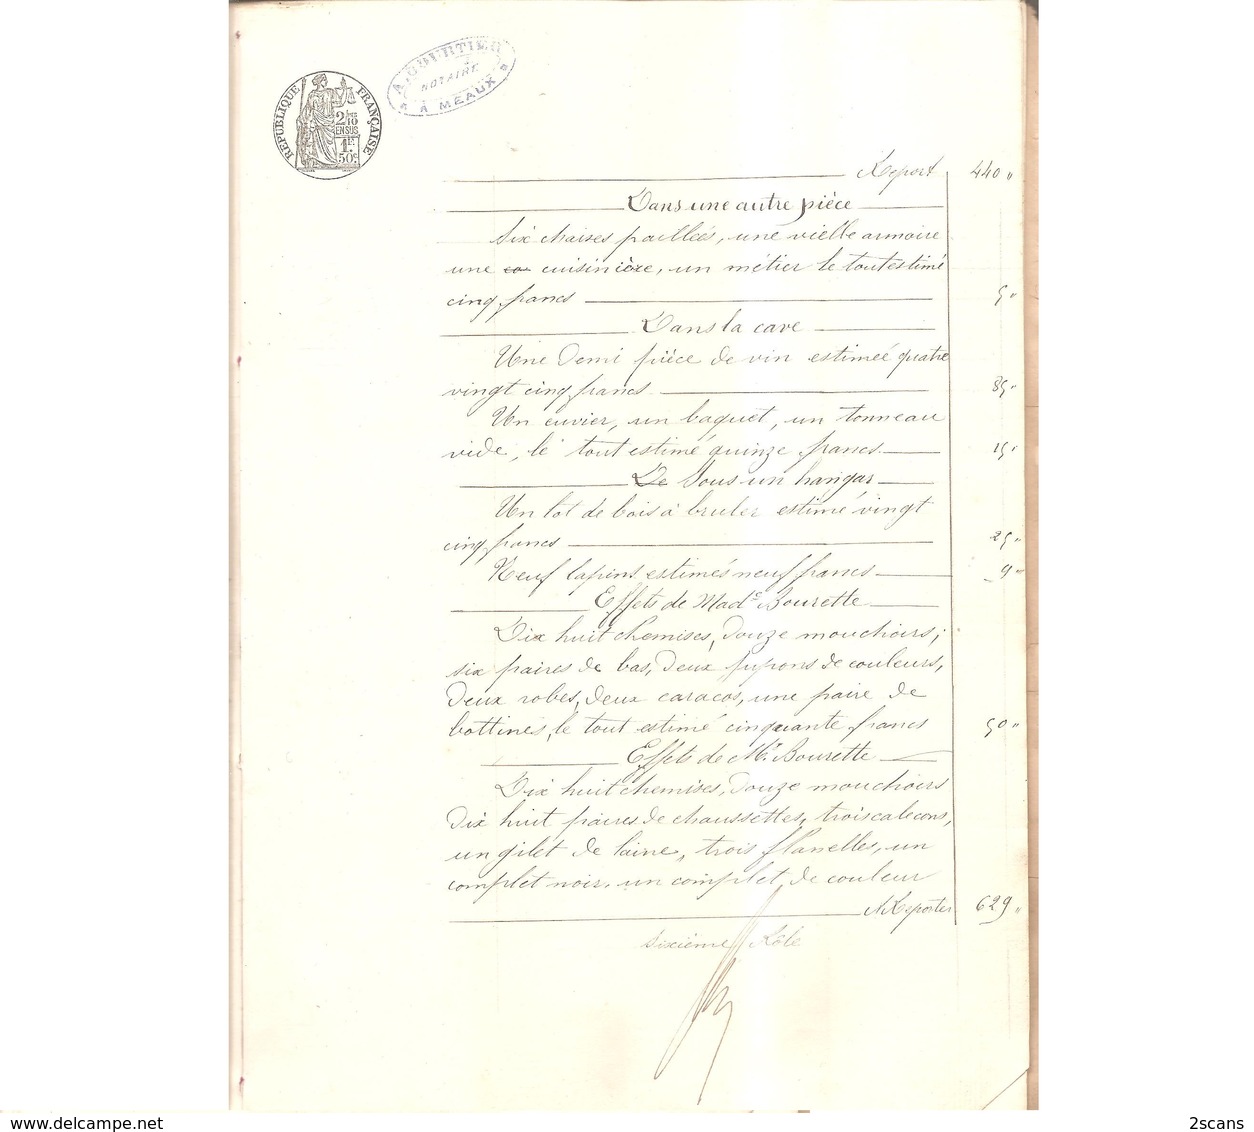 A. COURTIER
NOTAIRE
À MEAUX
RÉPUBLIQUE FRANÇAISE
2/10
EN SUS
1F.
50c.
Report 440 "
Dans une autre pièce
Six chaises paillées, une vielle armoire
une cuisinière, un métier le tout estimé
cinq francs 5 "
Dans la cave
Une Demi pièce de vin estimeé quatre
vingt cinq francs 85 "
Un cuvier, un baquet, un tonneau
vide, le tout estimé quinze francs 15 "
De Sous un hangar
Un lot de bois à bruler estimé vingt
cinq francs 25 "
Neuf lapins estimés neuf francs 9 "
Effets de Made Bourette
Dix huit chemises, douze mouchoirs,
six paires de bas, deux jupons de couleurs,
deux robes, deux caracos, une paire de
bottines, le tout estimé cinquante francs 50 "
Effets de Mr. Bourette
Dix huit chemises, douze mouchoirs
dix huit paires de chaussettes, trois calecons,
un gilet de laine, trois flanelles, un
complet noir, un complet de couleur
A Reporter 629 "
Sixième Rôle
www.delcampe.net
2scans